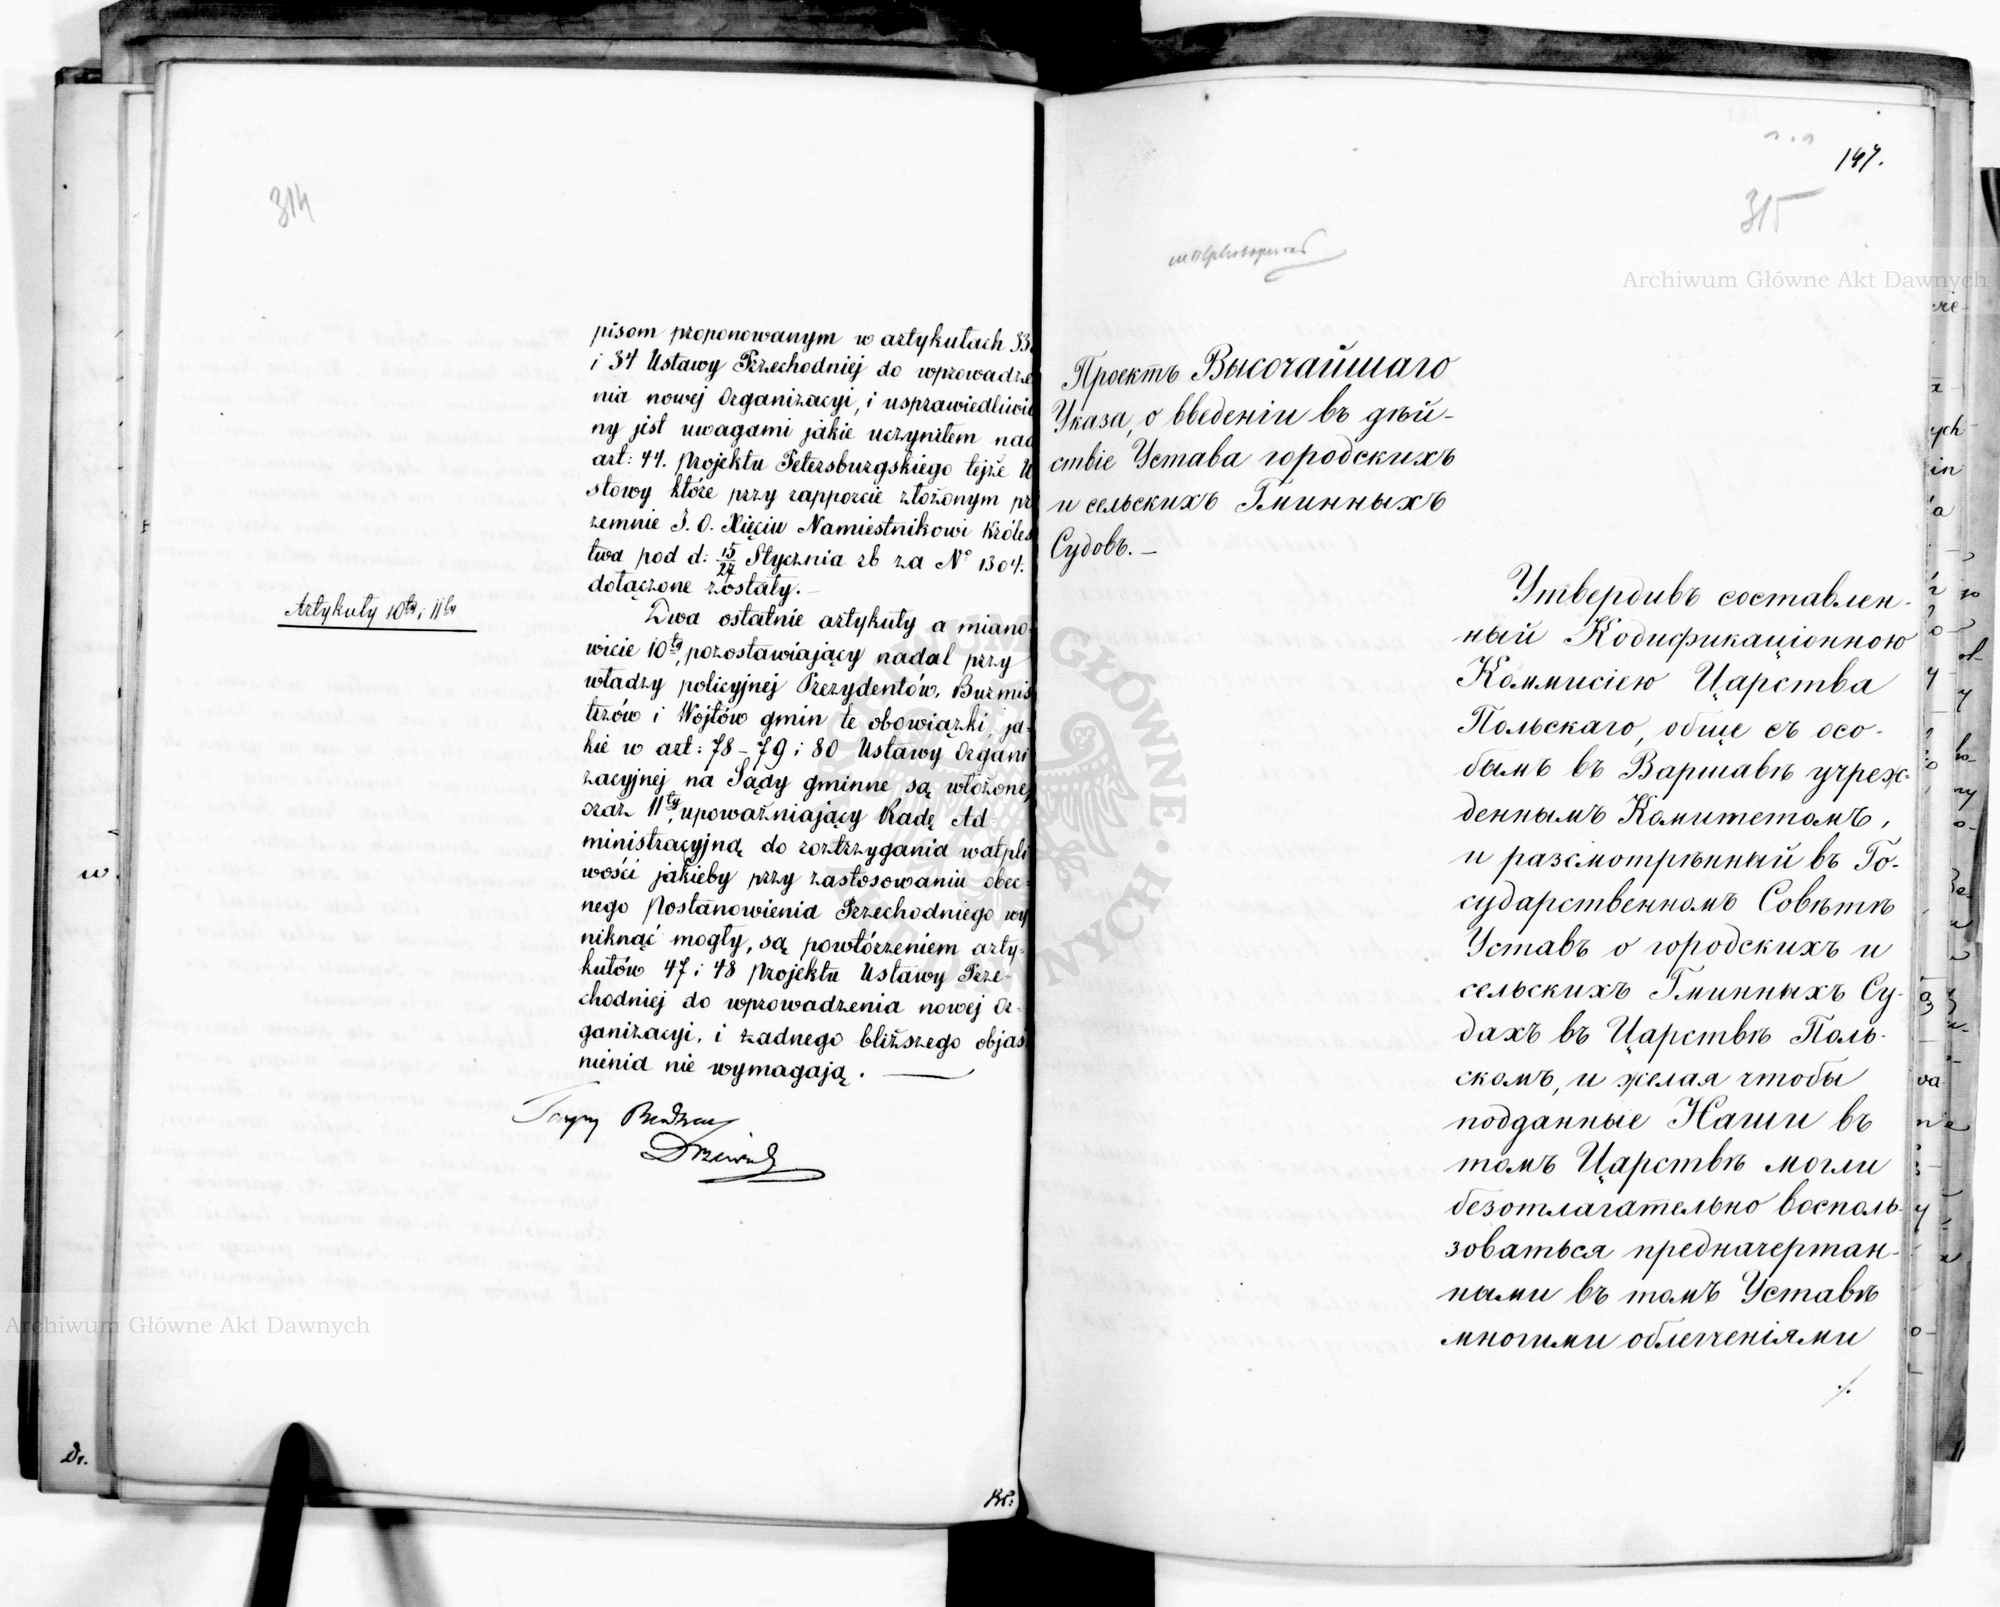 314
pisom proponowanym w artykułach 33
i 34 Ustawy Przechodniej do wprowadze
nia nowej Organizacyi, i usprawiedliwio
ny jest uwagami jakie uczyniłem nad
art: 44. Projektu Petersburgskiego tejże U
stawy które przy rapporcie złożonym prze
zemnie J. O. Xięciu Namiestnikowi Króles
twa pod d: 15/27 Stycznia rb za No 1304.
dołączone zostały. —
Artykuły 10ty i 11ty
Dwa ostatnie artykuły a miano-
wicie 10ty, pozostawiający nadal przy
władzy policyjnej Prezydentów, Burmis
trzów i Wójtów gmin te obowiązki, ja-
kie w art: 78 – 79 i 80 Ustawy Organi
zacyjnej na Sądy gminne są włożone,
oraz 11ty, upoważniający Radę Ad-
ministracyjną do roztrzygania wątpli
wości jakieby przy zastosowaniu obec-
nego Postanowienia Przechodniego wy
niknąć mogły, są powtórzeniem arty-
kułów 47 i 48 Projektu Ustawy Prze-
chodniej do wprowadzenia nowej Or-
ganizacyi, i żadnego bliższego objaś
nienia nie wymagają. —
147.
315
Проектъ Высочайшаго
Указа, о введеніи въ дѣй-
ствіе Устава городскихъ
и сельскихъ Гминныхъ
Судовъ. —
Утвердивъ составлен-
ный Кодификаціонною
Коммисіею Царства
Польскаго, обще съ осо-
бымъ въ Варшавѣ учреж-
деннымъ Комитетомъ,
и разсмотрѣнный въ Го-
сударственномъ Совѣтѣ
Уставъ о городскихъ и
сельскихъ Гминныхъ Су-
дахъ въ Царствѣ Поль-
скомъ, и желая чтобы
подданные Наши въ
томъ Царствѣ могли
безотлагательно восполь-
зоваться предначертан-
ными въ томъ Уставѣ
многими облегченіями
./.
Archiwum Główne Akt Dawnych
Archiwum Główne Akt Dawnych